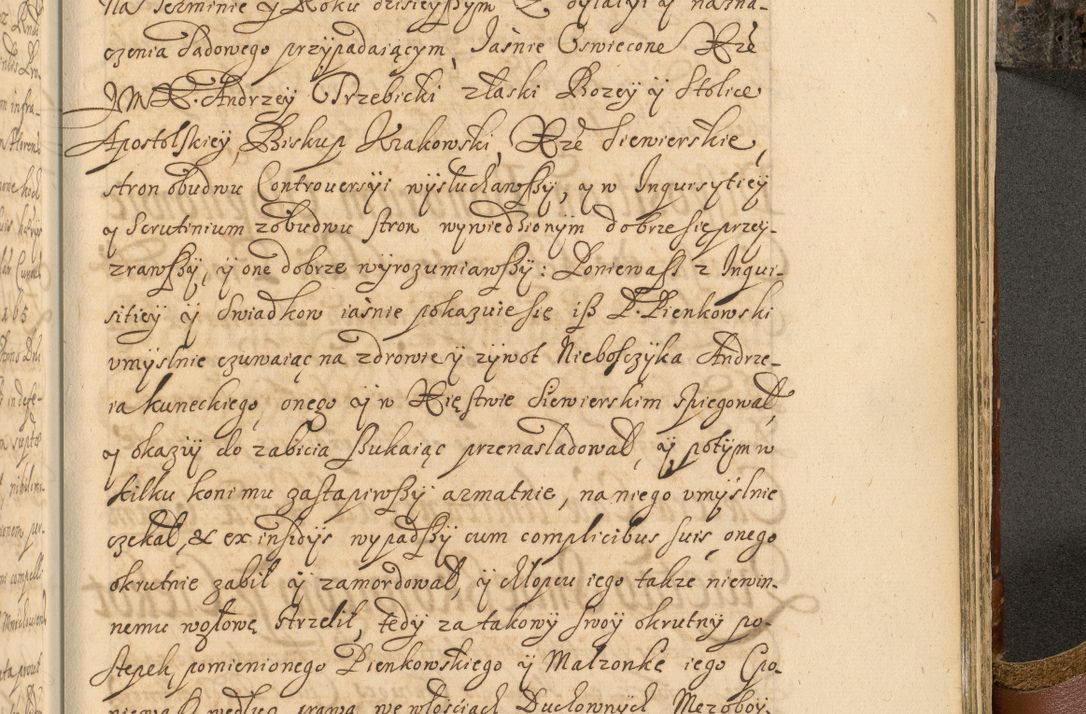 Na Terminie y Roku dzisieyßym Z dylatyi y nazna-
czenia Sadowego przypadaiącym, Jaśnie Oswiecone Xże
JMX. Andrzey Trzebicki złaski Bozey y Stolice
Apostolskiey, Biskup Krakowski, Xże Siewierskie,
stron obudwu Controuersyi wysłuchawßy, y w Inquisytiey
y Scrutinium zobudwu stron wywiedzionym dobrze się przey-
zrawßy, y one dobrze wyrozumiawßy: Ponieważ z Inqui-
sitiey y Swiadkow iaśnie pokazuie się iß P. Pienkowski
vmyslnie czuwaiąc na zdrowie y zywot Nieboszczyka Andrze-
ia Kuneckiego, onego y w Xięstwie Siewierskim spiegował,
y okazyi do zabicia ßukaiąc przenasladował, y potym w
kilku koni mu zastąpiwßy armatnie, na niego vmyślnie
czekał, & ex insidijs wypadßy cum complicibus suis, onego
okrutnie zabił y zamordował, y chłopcu iego takze niewin-
nemu wgłowę strzelił, tedy za takowy swoy okrutny po-
stępek, pomienionego Pienkowskiego y Malzonke iego (po-
niewaz według prawa we włościach Duchownych Mezoboy-